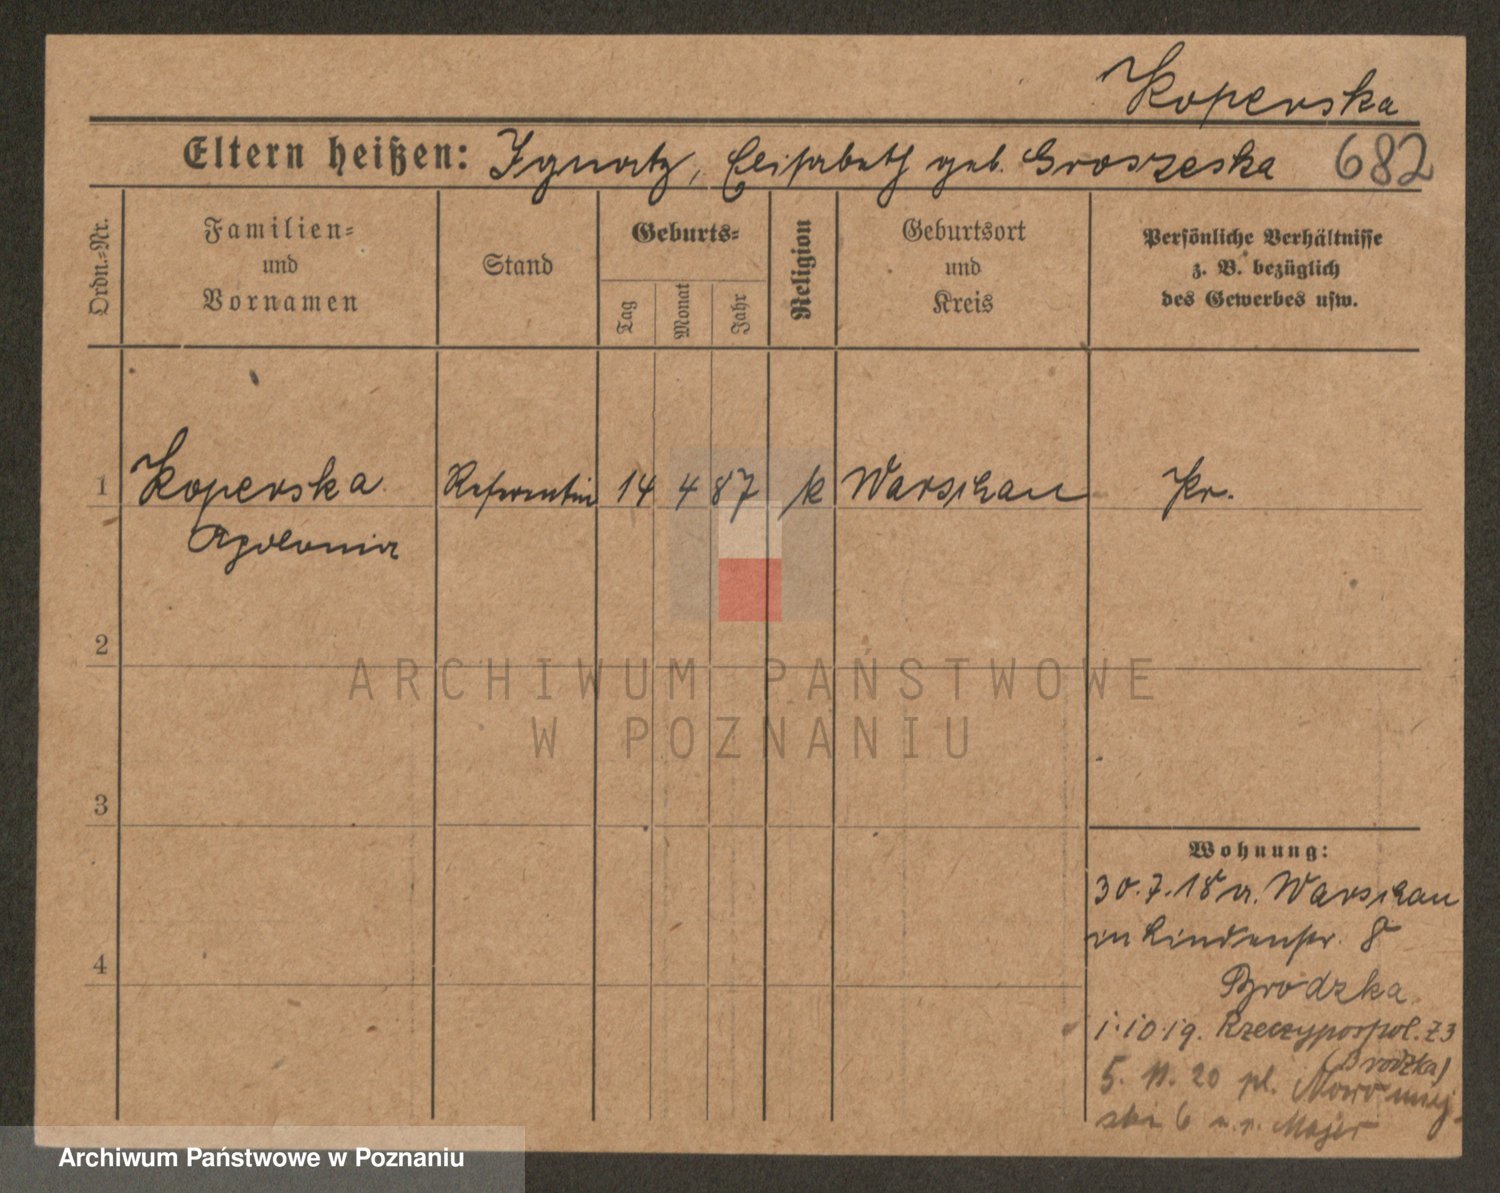 Koperska
Eltern heißen: Ignatz, Elisabeth geb. Groszeska 682
Ordn.-Nr.
Familien-
und
Vornamen
Stand
Geburts-
Tag
Monat
Jahr
Religion
Geburtsort
und
Kreis
Persönliche Verhältnisse
z. B. bezüglich
des Gewerbes usw.
1 Koperska Referentin 14 4 87 k Warschau Pr.
Apolonia
2
ARCHIWUM PAŃSTWOWE
W POZNANIU
3
Wohnung:
30.7.18 a. Warschau
in Lindenstr. 8
4
Brodzka
1.10.19. Rzeczypospol. Z3
(Brodzka)
5. 11. 20 pl. Nowomiej-
ski 6 Majer
Archiwum Państwowe w Poznaniu